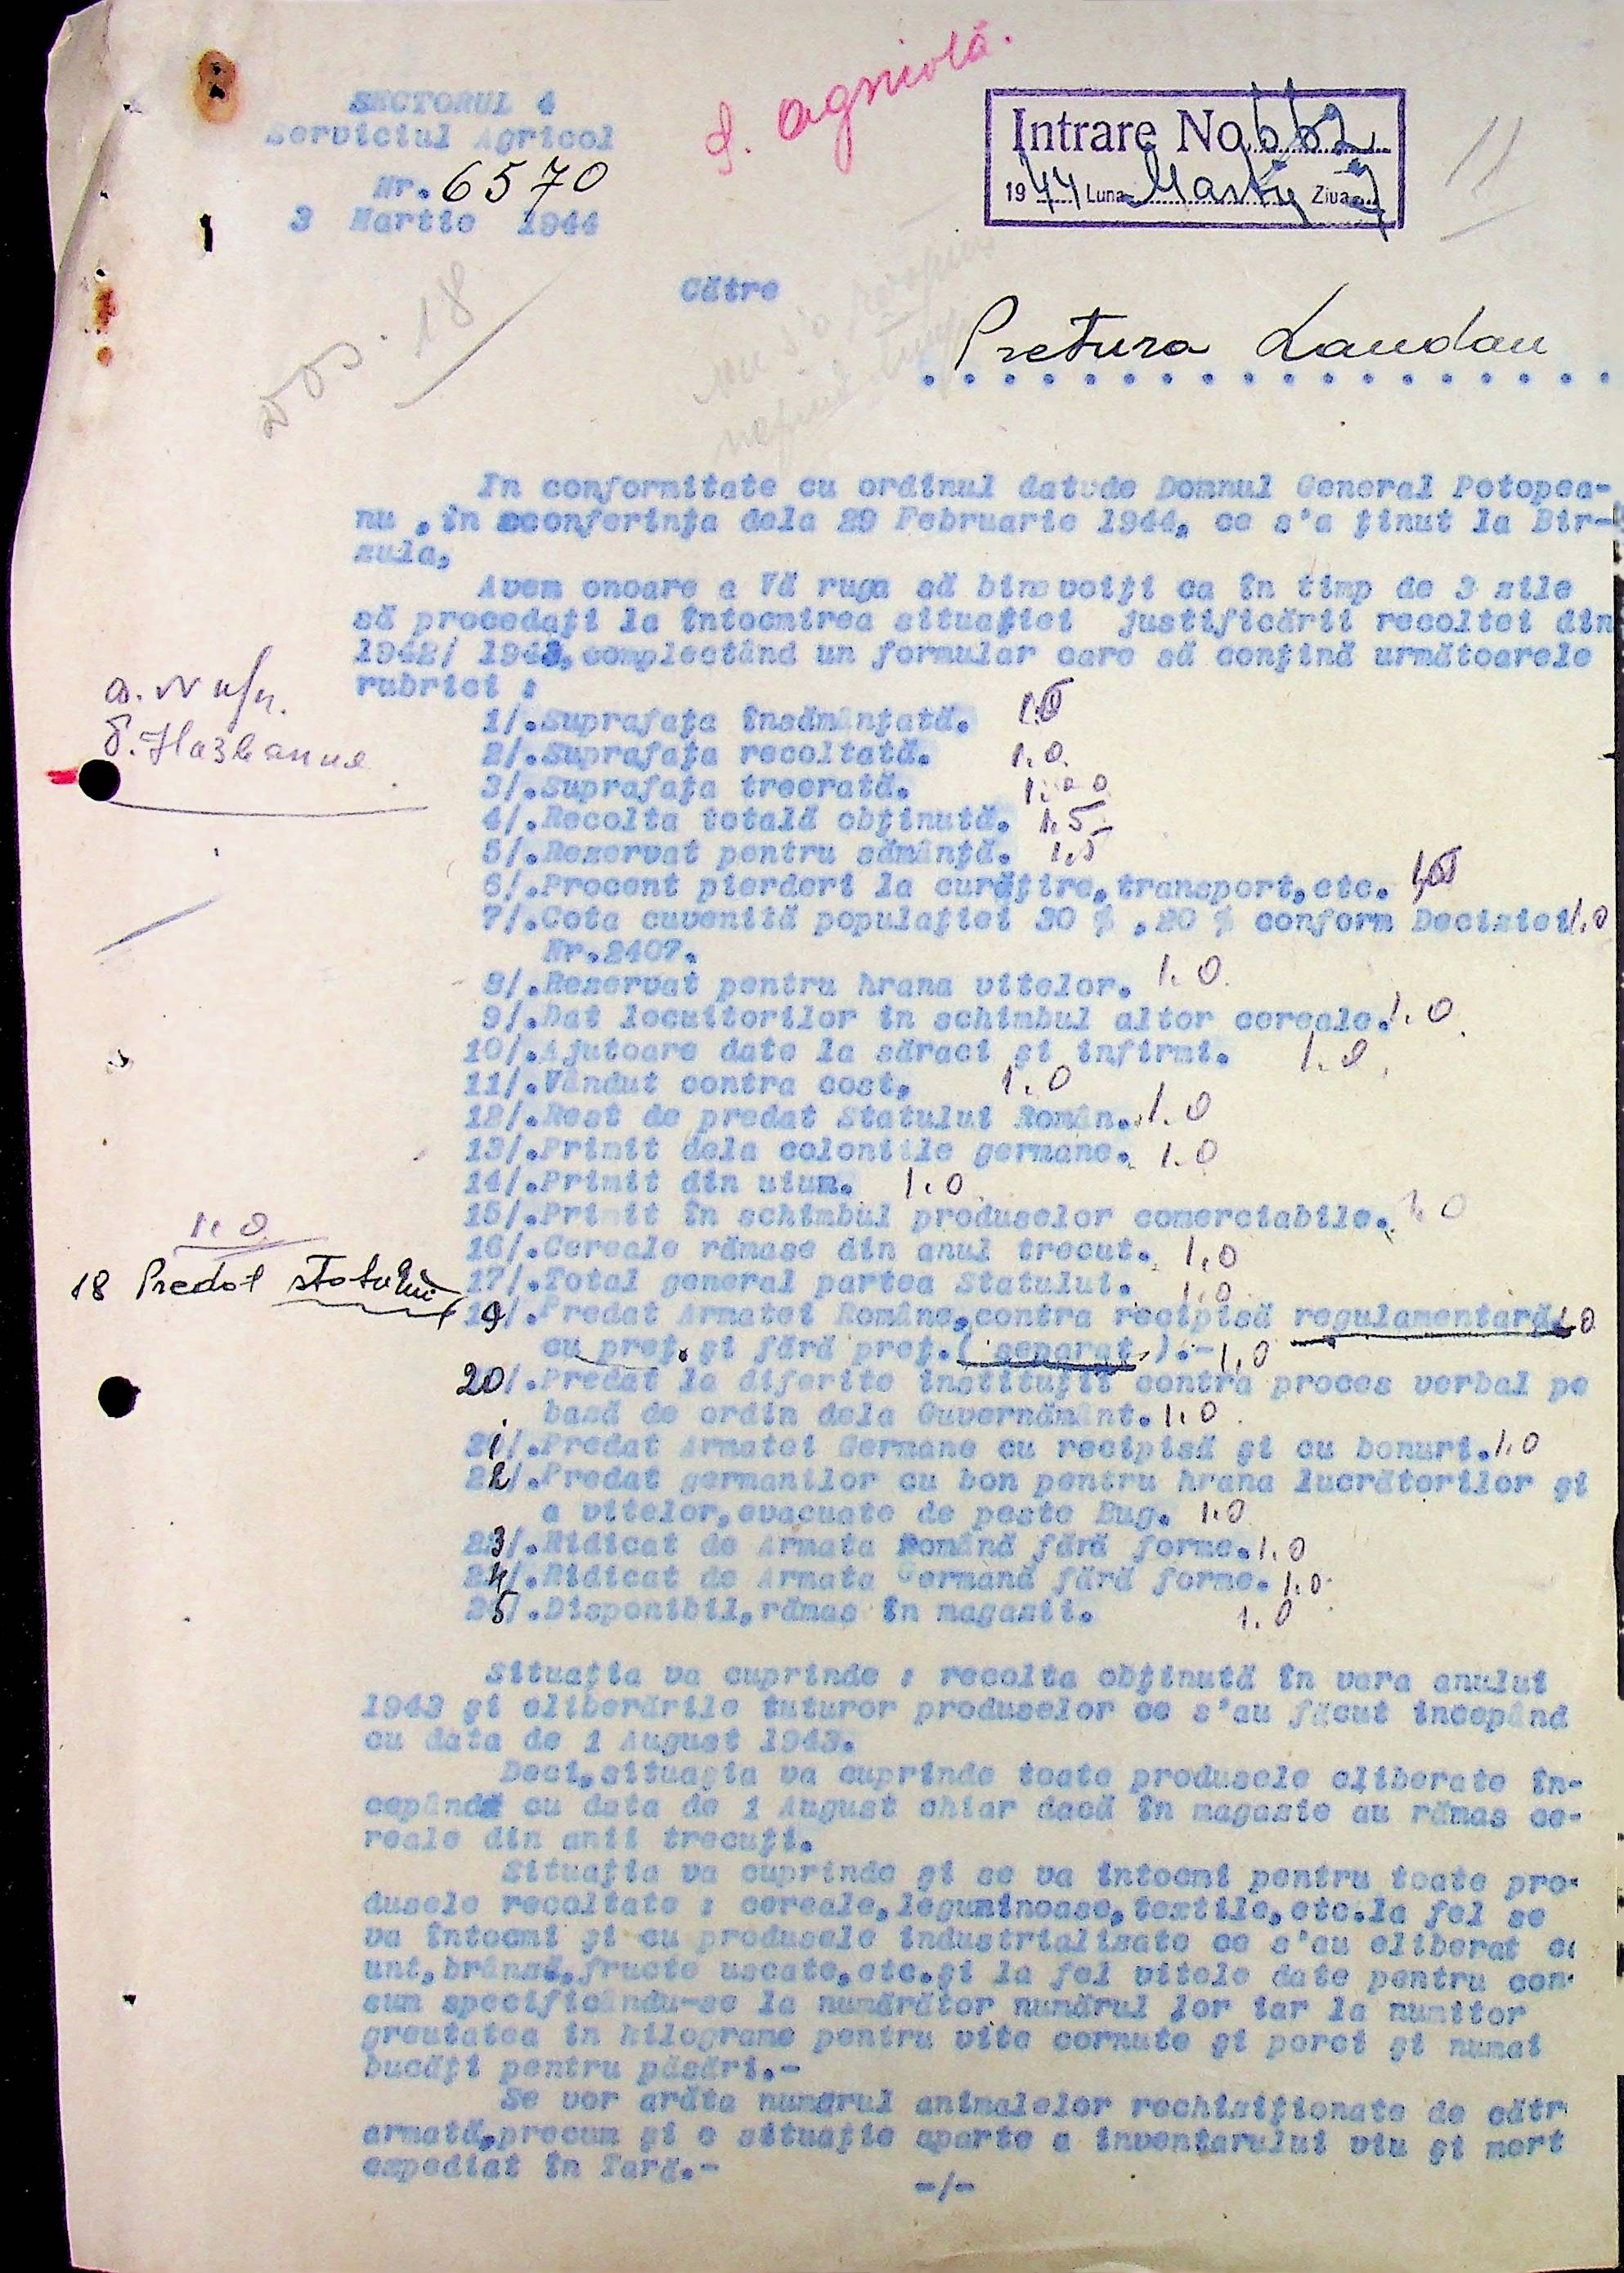 S. agricolă.
SECTORUL 4
Serviciul Agricol
Nr. 6570
3 Martie 1944
Intrare No 662
1944 Luna Martie Ziua 7
11
Dos. 18
Către
Pretura Landau
In conformitate cu ordinul dat de Domnul General Potopea-
nu , în conferinţa dela 29 Februarie 1944, ce s'a ţinut la Bir-
zula,
Avem onoare a Vă ruga să bine voiţi ca în timp de 3 zile
să procedaţi la întocmirea situaţiei justificării recoltei din
1942/ 1943, complectând un formular care să conţină următoarele
rubrici :
а. № п/п.
б. Название
1/.Suprafaţa însămânţată. 1.5
2/.Suprafaţa recoltată. 1.0.
3/.Suprafaţa treerată.
4/.Recolta totală obţinută. 1.5
5/.Rezervat pentru sămânţă. 1.5
6/.Procent pierderi la curăţire,transport,etc. 1.5
7/.Cota cuvenită populaţiei 30 % ,20 % conform Deciziei 1.0
Nr.2407.
8/.Rezervat pentru hrana vitelor. 1.0.
9/.Dat locuitorilor în schimbul altor cereale. 1.0.
10/.Ajutoare date la săraci şi infirmi. 1.0.
11/.Vândut contra cost, 1.0
12/.Rest de predat Statului Român. 1.0
13/.Primit dela coloniile germane. 1.0
14/.Primit din uium. 1.0.
15/.Primit în schimbul produselor comerciabile. 1.0
16/.Cereale rămase din anul trecut. 1.0
17/.Total general partea Statului. 1.0
1.0
18 Predat statului
19/.Predat Armatei Române,contra recipisă regulamentară, 1.0
cu preţ, şi fără preţ.( separat ).- 1.0
20/.Predat la diferite instituţii contra proces verbal pe
bază de ordin dela Guvernământ. 1.0.
21/.Predat Armatei Germane cu recipisă şi cu bonuri. 1.0
22/.Predat germanilor cu bon pentru hrana lucrătorilor şi
a vitelor,evacuate de peste Bug. 1.0
23/.Ridicat de Armata Română fără forme. 1.0
24/.Ridicat de Armata Germană fără forme. 1.0.
25/.Disponibil,rămas în magazii. 1.0
Situaţia va cuprinde : recolta obţinută în vara anului
1943 şi eliberările tuturor produselor ce s'au făcut începând
cu data de 1 August 1943.
Deci,situaţia va cuprinde toate produsele eliberate în-
cepând cu data de 1 August chiar dacă în magazie au rămas ce-
reale din anii trecuţi.
Situaţia va cuprinde şi se va întocmi pentru toate pro-
dusele recoltate : cereale,leguminoase,textile,etc.la fel se
va întocmi şi cu produsele industrializate ce s'au eliberat
unt,brânză,fructe uscate,etc.şi la fel vitele date pentru con-
sum specificându-se la numărător numărul lor iar la numitor
greutatea în kilograme pentru vite cornute şi porci şi numai
bucăţi pentru păsări.-
Se vor arăta numărul animalelor rechiziţionate de cătr
armată,precum şi o situaţie aparte a inventarului viu şi mort
expediat în Ţară.-
-/-